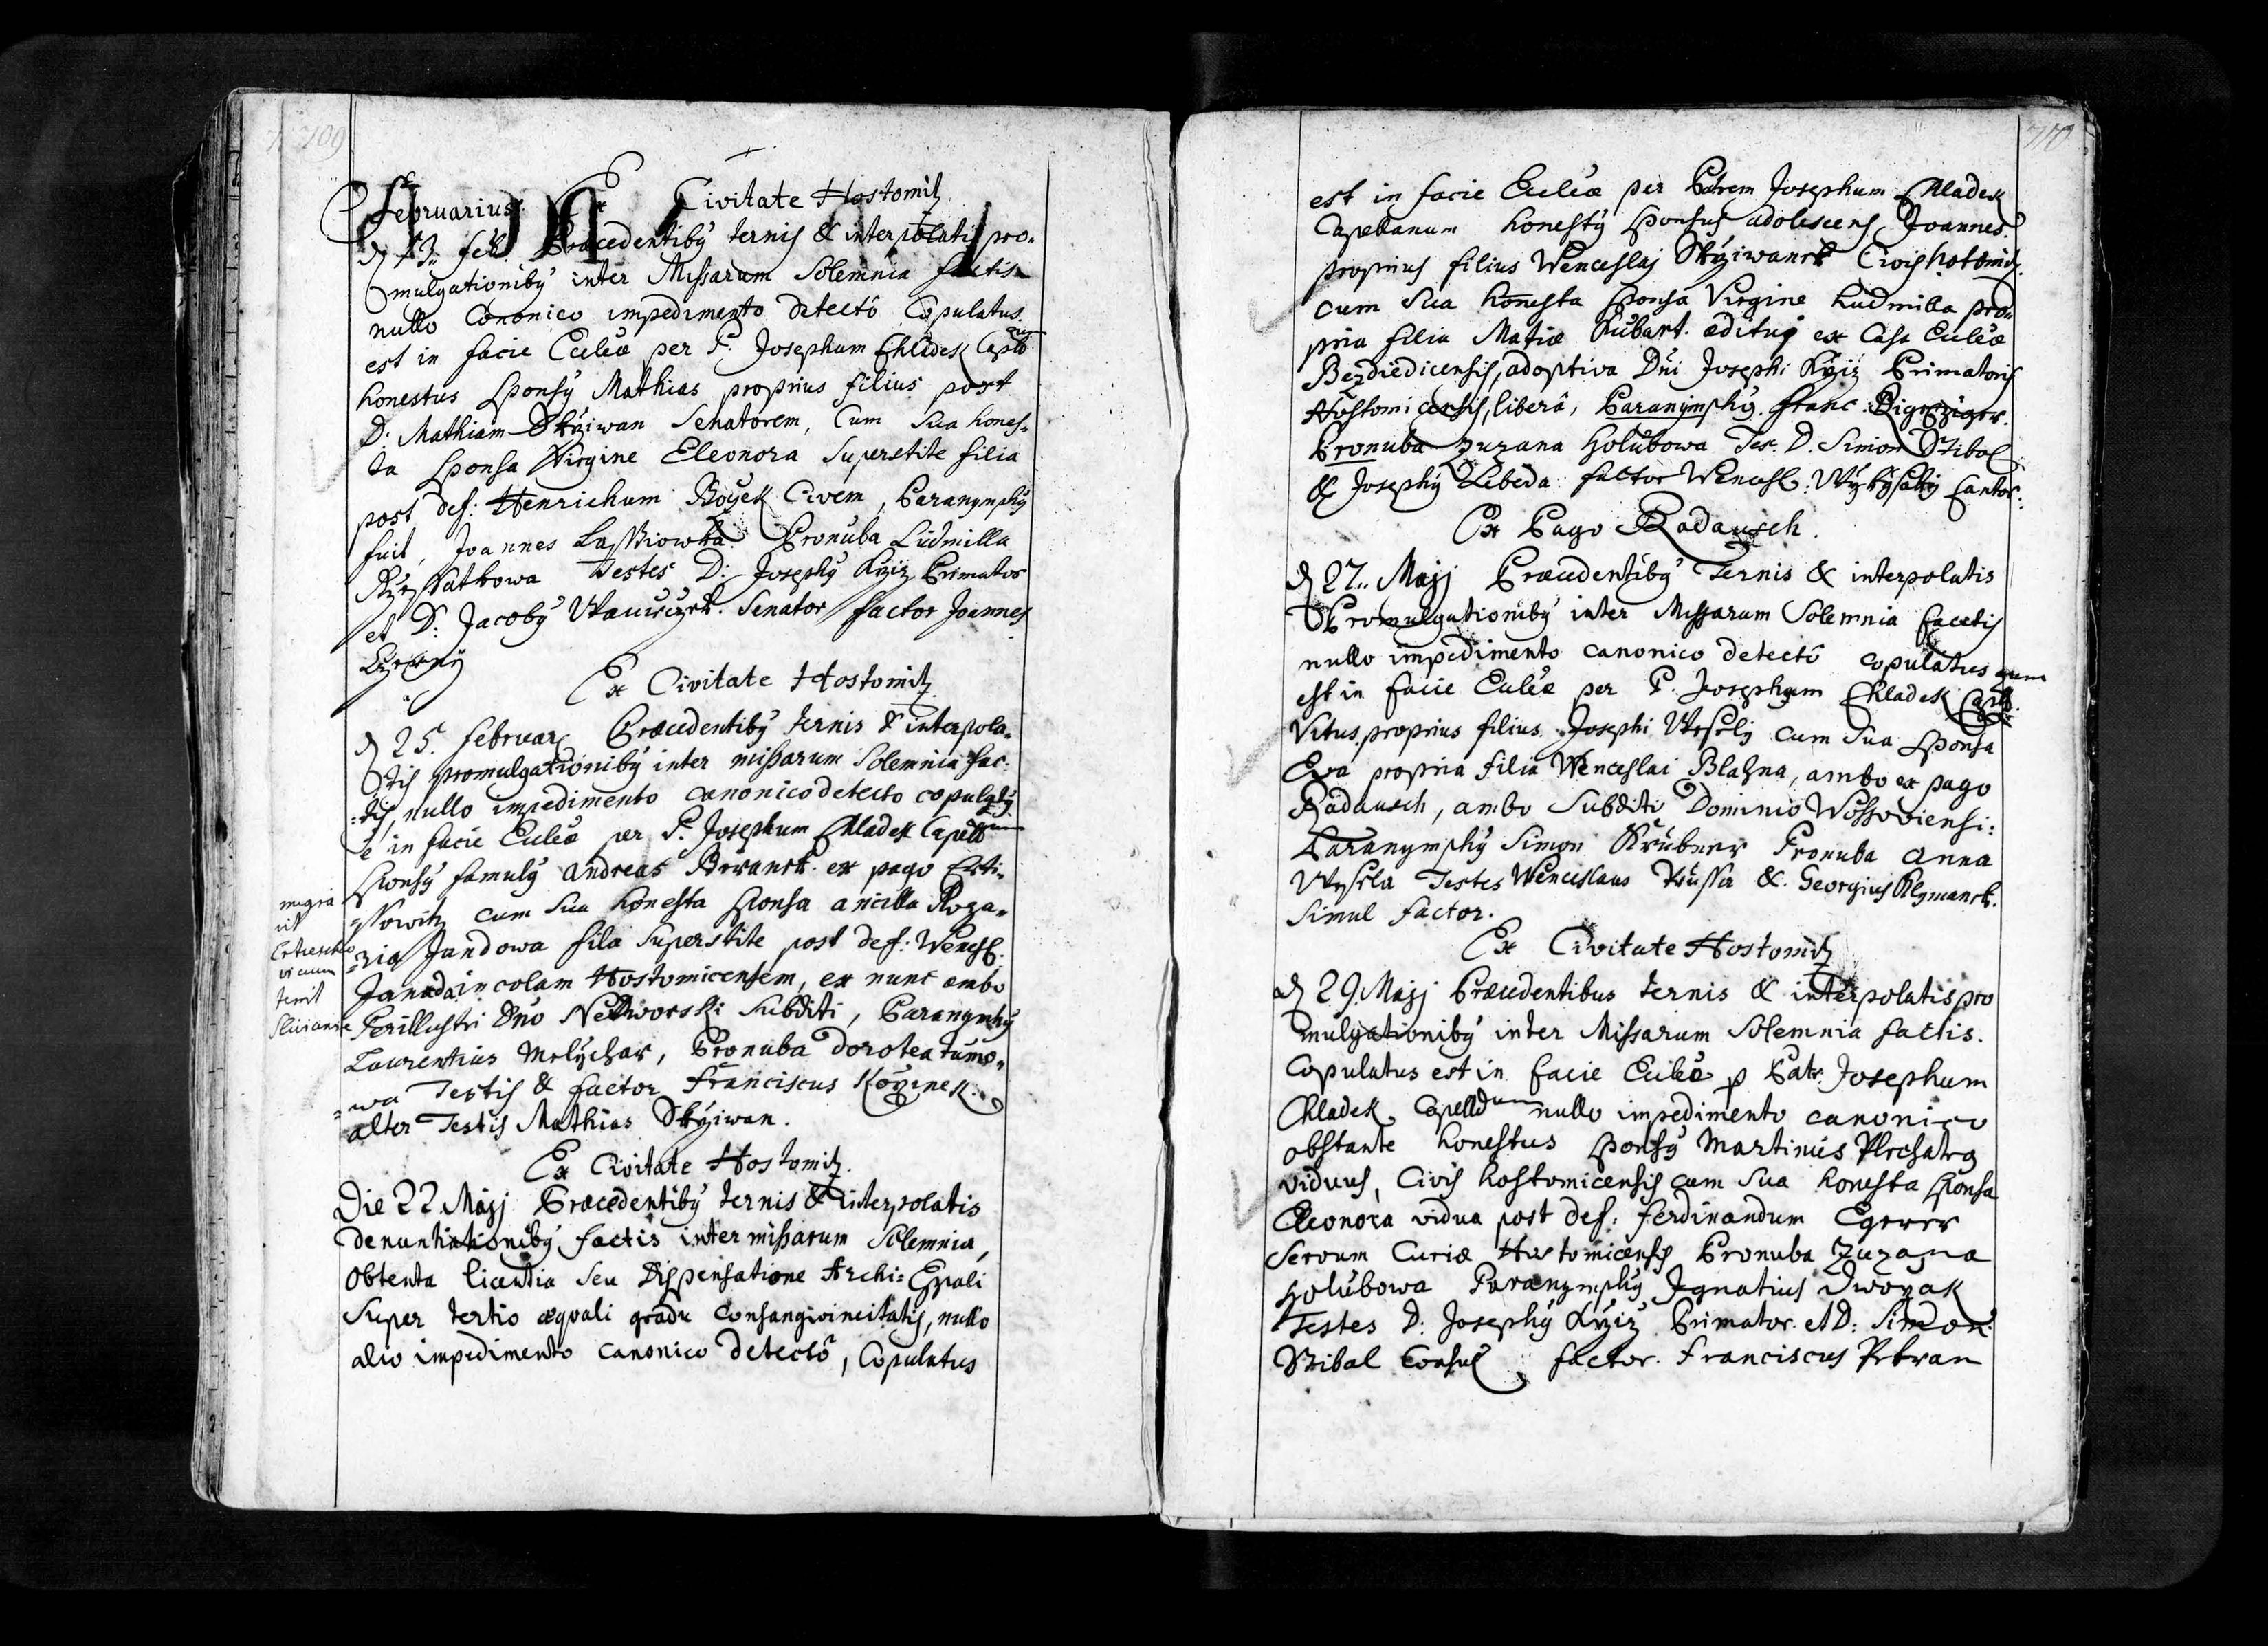 709
Februarius Ex Civitate Hostomitz
d 13. feb. Præcedentibꝰ ternis & interpolatis pro-
mulgationibꝰ inter Missarum Solemnia factis
nullo Cononico impedimento detectô Copulatus
est in facie Eccl͞iæ per P. Josephum Chladek Capell um
honestus Sponsꝰ Mathias proprius filius post
D: Mathiam Skřiwan Senatorem, Cum Sua hones-
ta Sponsa Virgine Eleonora Superstite filia
post def: Henrichum Boyek Civem, Paranymphꝰ
fuit, Joannes Pronuba Ludmilla
Testes D: Josephꝰ Kržiž Primator
et D: Jacobꝰ Senator factor Joannes
Ex Civitate Hostomitz
d 25. februarij Præcedentibꝰ ternis & interpola-
tis promulgationibꝰ inter missarum Solemnia fac-
=tis, nullo impedimento canonico detecto copulatꝰ
e in facie Eccl͞iæ per P. Josephum Chladek Capell um
Sponsꝰ famulꝰ Andreas ex pago Erti-
=schowitz cum Sua honesta Sponsa ancilla Roza-
=ria Jandowa fila Superstite post def: Wencesl:
Janda incolam Hostomicensem, ex nunc ambo
Perillustri Dn͞o Networski Subditi, Paranymphꝰ
Laurentius Melichar, Pronuba Dorotea tumo-
=wa Testis & factor Franciscus Kožinek.
alter Testis Mathias Skřiwan.
migra
vit
vicum
Ex Civitate Hostomitz.
Die 22 Majj Præcedentibꝰ ternis & interpolatis
denuntiationibꝰ factis inter missarum Solemnia,
obtenta licentia seu Dispensatione Archi-Ep͞pali
Super tertio æquali gradu Consangvineitatis, nullo
alio impedimento canonico detectô, Copulatus
710
est in facie Eccl͞iæ per Patrem Josephum Chladek
Capellanum honestꝰ Sponsus adolescens Joannes
proprius filius Wenceslaj Skřiwanek Civis hostomic.
cum Sua honesta Sponsa Virgine Ludmilla pro-
pria filia Matiæ Kubart. æditui ex Casa Eccl͞iæ
Bezdiedicensis, adoptiva Dn͞i Josephi Kržiž Primatoris
Hostomicensis, liberâ, Paranymphꝰ. Franc:
Pronuba Zuzana Holubowa Tes. D. Simon Stibal
& Josephꝰ Lebeda factor Wencesl: Cantor.
Ex Pago Radausch.
d 27. Majj Præcedentibꝰ Ternis & interpolatis
Promulgationibꝰ inter Missarum Solemnia factis
nullo impedimento canonico detectô copulatus
est in facie Eccl͞iæ per P. Josephum Chladek Capell. um
Vitus proprius filius Josephi Wesely cum Sua Sponsa
Eva propria filia Wenceslai Blahna, ambo ex pago
Radausch, ambo Subditi Dominio Wossoviensi:
Paranymphꝰ Simon Krubner Pronuba Anna
Wesela Testes Wenceslaus & Georgius Klymanek.
Simul factor.
Ex Civitate Hostomitz
d 29. Majj Præcedentibus ternis & interpolatis pro
mulgationibꝰ inter Missarum Solemnia factis.
Copulatus est in facie Eccl͞iæ p Patr. Josephum
Chladek Capell um nullo impedimento canonico
obstante honestus Sponsꝰ Martinus
viduus, Civis hostomicensis cum Sua honesta Sponsa
Eleonora vidua post def: Ferdinandum Egerer
Servum Curiæ Hostomicensis Pronuba Zuzana
Holubowa Paranymphꝰ Ignatius Dwořak
Testes D: Josephꝰ Kržiž Primator et D: Simon
Stibal Consul factor. Franciscus Petran